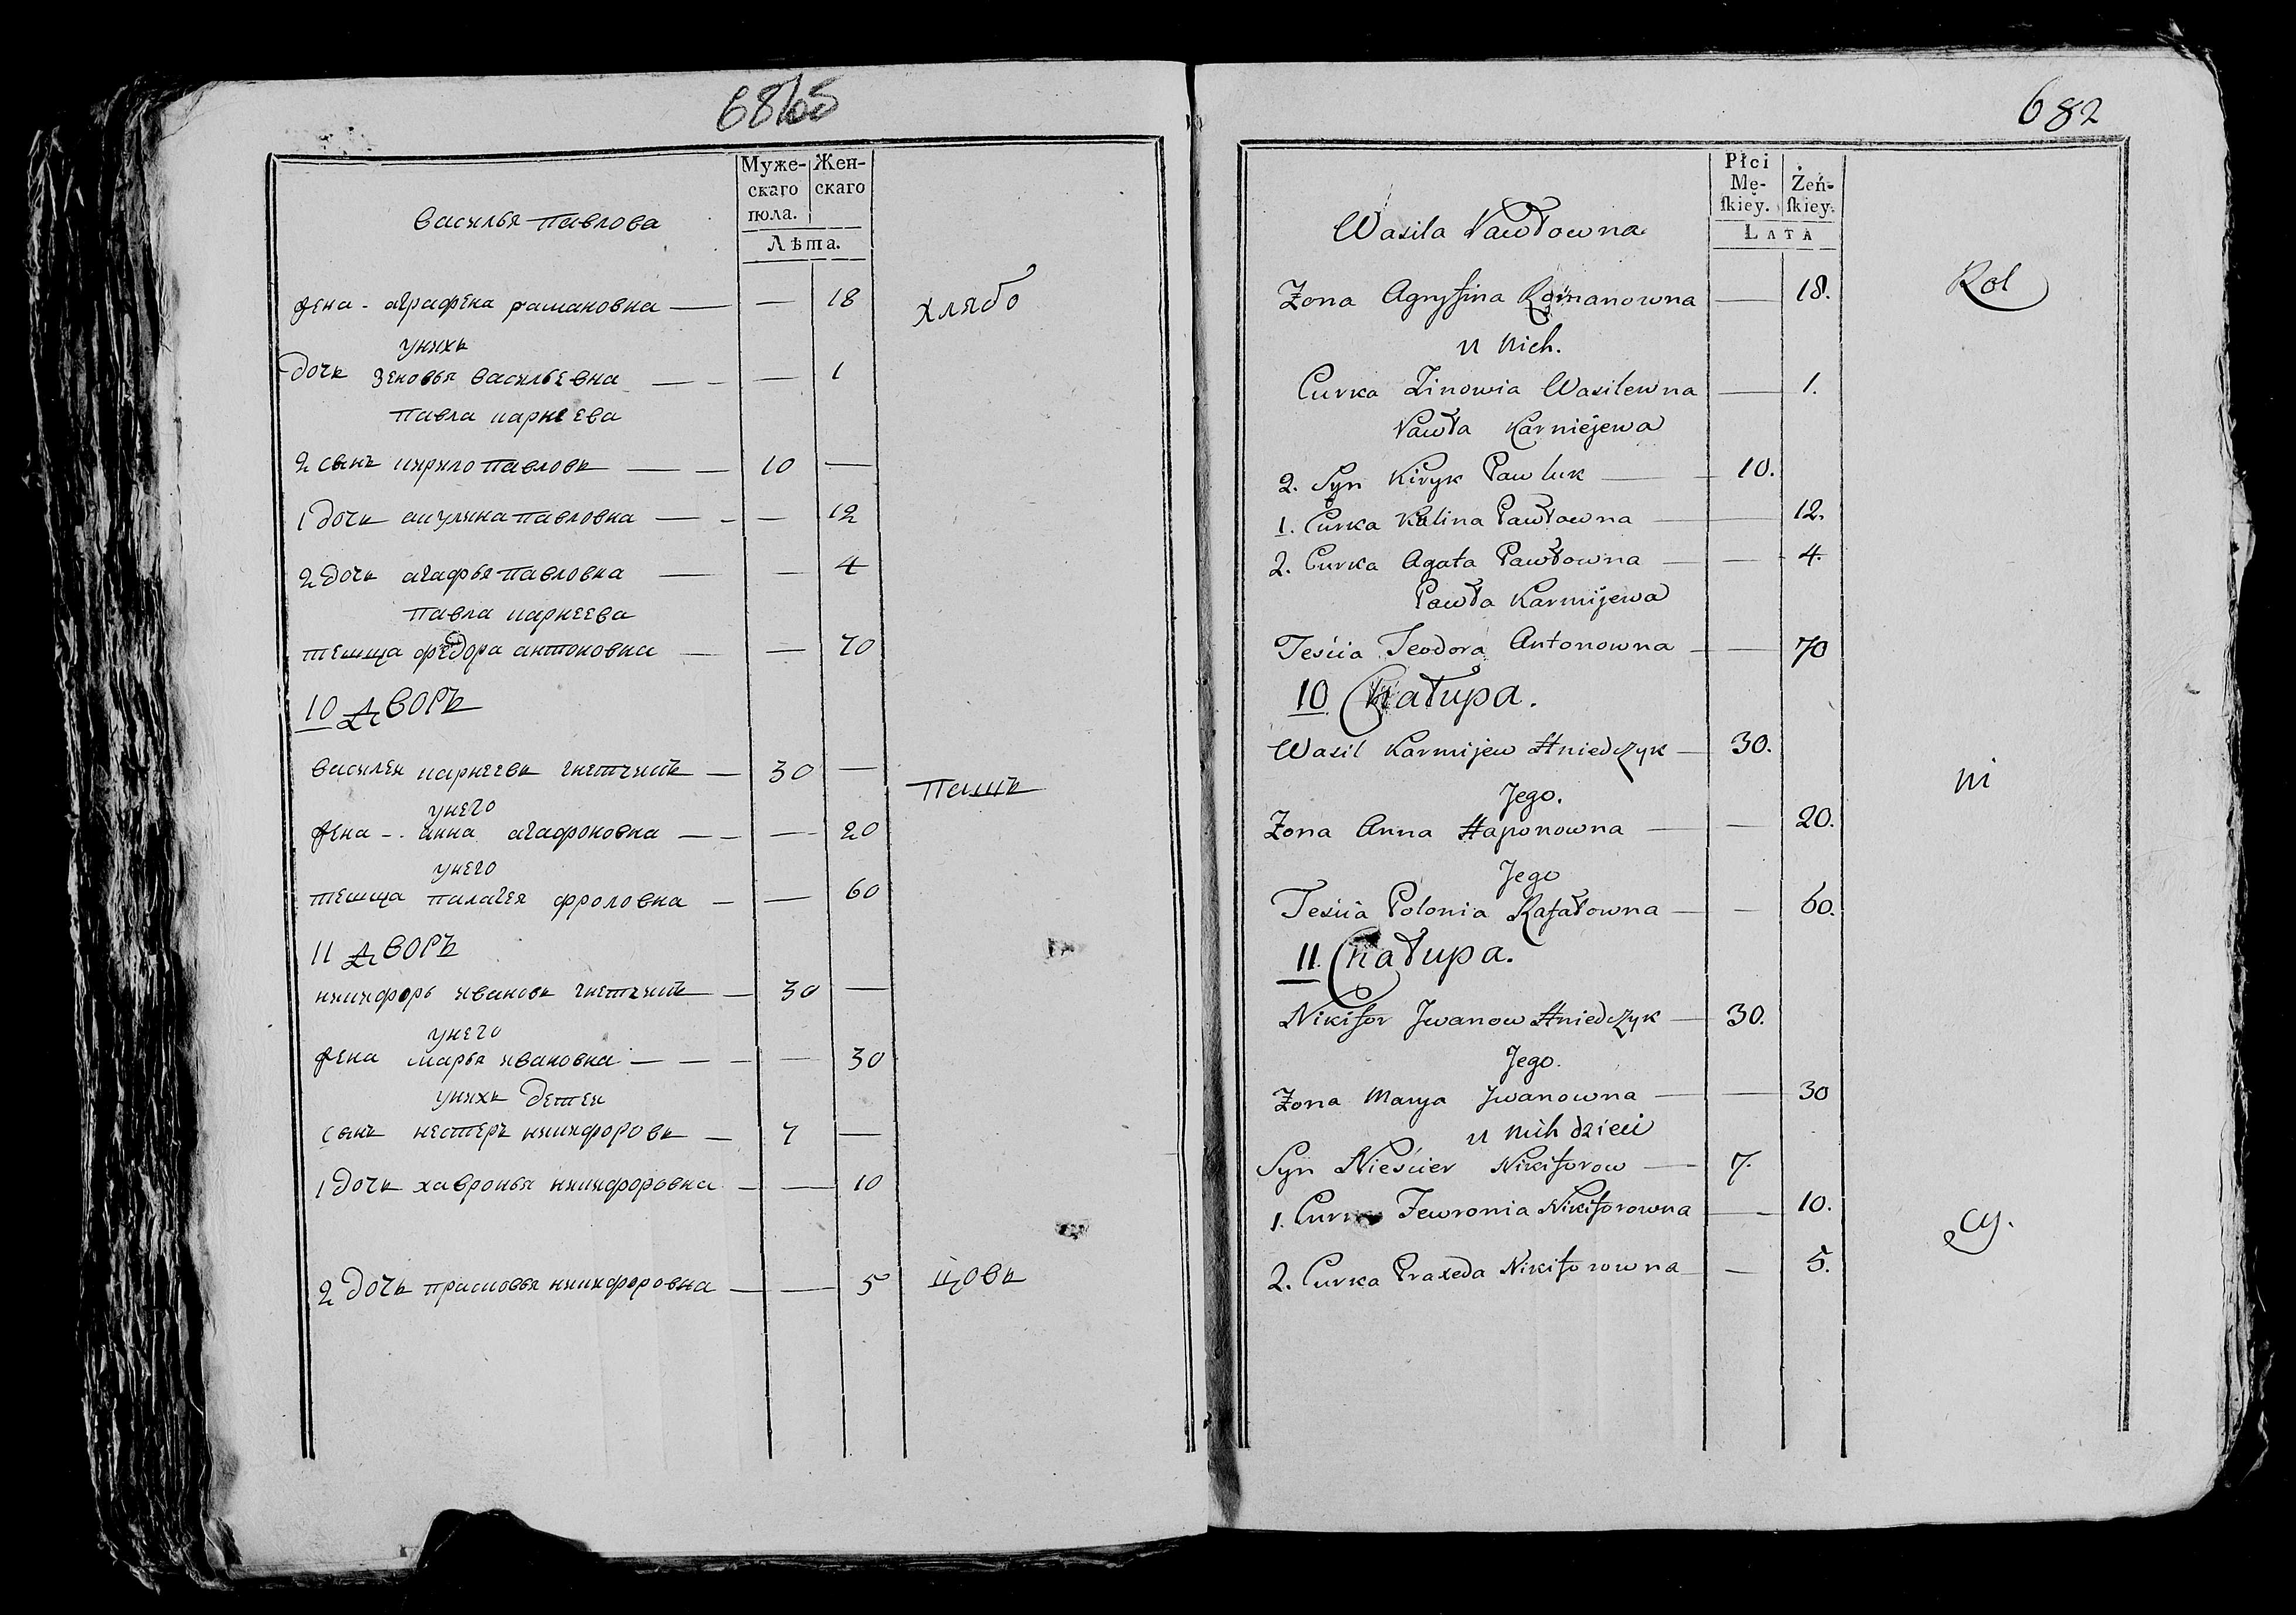 68об
Муже-
скаго
пола.
Жен-
скаго
Лѣта.
василья павлова
жена - аграфена рамановка — — 18
хлябо
унихъ
дочь зеновья васильевна — — 1
павла карнеева
2 сынъ кирило павловъ — 10 —
1 дочь акулина павловна — — 12
2 дочь агафья павловна — — 4
павла карнеева
тешща федора антоновна — — 70
10 дворъ
василеи карнеевъ гнетчикъ — 30 —
пашъ
унего
жена - анна агафоновна — — 20
унего
тешща палагея фроловна — — 60
11 дворъ
никифоръ ивановъ гнетчикъ — 30 —
унего
жена марья ивановна — — 30
унихъ детеи
сынъ нестеръ никифоровъ — 7 —
1 дочь хавронья никифоровна — — 10
2 дочь прасковья никифоровна — — 5
цовъ
682
Płci
Mę-
ſkiey.
Żeń-
ſkiey.
LATA
Wasila Pawłowna
Rol
Zona Agryfina Romanowna — — 18.
u nich.
Curka Zinowia Wasilewna — 1.
Pawła Karniejewa
2. Syn Kiryk Pawluk — 10.
1. Curka Kalina Pawłowna — 12.
2. Curka Agata Pawłowna — — 4.
Pawła Karmijewa
Teścia Teodora Antonowna — — 70
10 Chałupa.
Wasil Karmijew Hniedczyk — 30.
ni
Jego.
Zona Anna Haponowna — — 20.
Jego
Teścia Polonia Rafałowna — — 60.
11. Chałupa.
Nikifor Jwanow Hniedczyk — 30.
Jego.
Zona Marya Jwanowna — — 30
u nich dzieci
Syn Nieścier Nikiforow — 7.
1. Curka Fewronia Nikiforowna — 10.
cy.
2. Curka Praxeda Nikiforowna — 5.